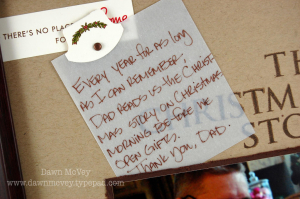 THERE'S NO PLACE
FO
EVERY YEAR FOR AS LONG
AS I CAN REMEMBER,
DAD READS US THE CHRIST
MAS STORY ON CHRISTMAS
MORNING BEFORE WE
OPEN GIFTS.
THANK YOU, DAD.
THE
CHRISTMAS
STO
Dawn McVey
www.dawnmcvey.typepad.com